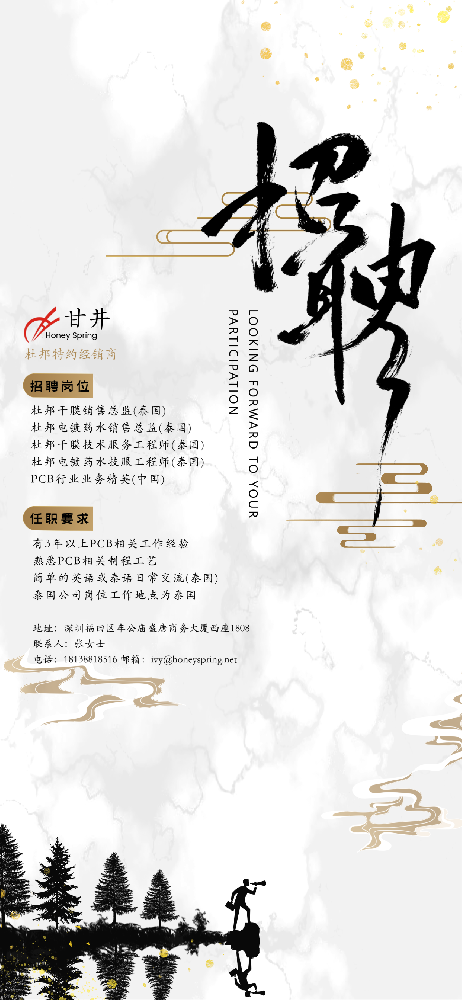 招聘
LOOKING FORWARD TO YOUR
PARTICIPATION
甘井
Honey Spring
杜邦特约经销商
招聘岗位
杜邦干膜销售总监(泰国)
杜邦电镀药水销售总监(泰国)
杜邦干膜技术服务工程师(泰国)
杜邦电镀药水技服工程师(泰国)
PCB行业业务精英(中国)
任职要求
有3年以上PCB相关工作经验
熟悉PCB相关制程工艺
简单的英语或泰语日常交流(泰国)
泰国公司岗位工作地点为泰国
地址：深圳福田区车公庙盛唐商务大厦西座1808
联系人：张女士
电话：18138818516 邮箱：ivy@honeyspring.net